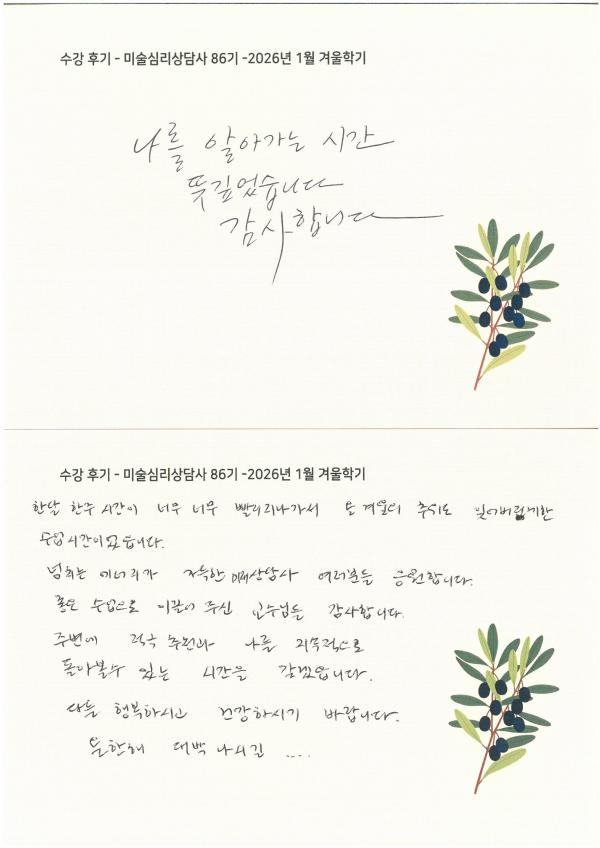 수강 후기 - 미술심리상담사 86기 -2026년 1월 겨울학기
나를 알아가는 시간
뜻깊었습니다
감사합니다
수강 후기 - 미술심리상담사 86기 -2026년 1월 겨울학기
한달 한주 시간이 너무 너무 빨리지나가서 올 겨울의 추위도 잊어버릴만한
수업시간이었습니다.
넘치는 에너지가 가득한 미술상담사 여러분들 응원합니다.
좋은 수업으로 이끌어 주신 교수님들 감사합니다.
주변에 적극 추천과 나를 지속적으로
돌아볼수 있는 시간을 갖겠습니다.
다들 행복하시고 건강하시기 바랍니다.
올한해 대박 나시길 ....